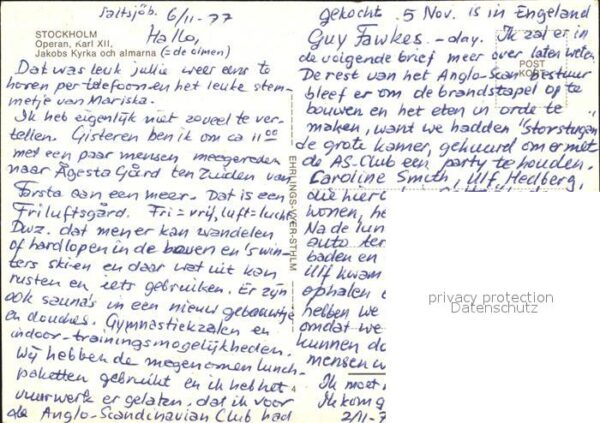 Saltsjöb. 6/11-77
STOCKHOLM
Operan, Karl XII,
Jakobs Kyrka och almarna (= de olmen)
Hallo,
Dat was leuk jullie weer eens te
horen per telefoon en het leuke stem-
metje van Mariska.
Ik heb eigenlijk niet zoveel te ver-
tellen. Gisteren ben ik om ca 11 00
met een paar mensen meegereden
naar Ågesta Gård ten Zuiden van
Farsta aan een meer. Dat is een
Friluftsgård. Fri = vrij, luft = lucht
Dwz. dat men er kan wandelen
of hardlopen in de bossen en 's win-
ters ski-en en daar wat uit kan
rusten en iets gebruiken. Er zijn
ook sauna's in een nieuw gebouwtje
en douches. Gymnastiekzalen en
indoor-trainingsmogelijkheden.
Wij hebben de meegenomen lunch-
paketten gebruikt en ik heb het
vuurwerk er gelaten, dat ik voor
de Anglo-Scandinavian Club had
EHRLINGS-VYER-STHLM
gekocht. 5 Nov. is in Engeland
Guy Fawkes-day. Ik zal er in
de volgende brief meer over laten weten.
POST
KORT
De rest van het Anglo-Scan bestuur
bleef er om de brandstapel op te
bouwen en het eten in orde te
maken, want we hadden "Storstugan"
de grote kamer, gehuurd om er met
de AS-Club een party te houden.
Caroline Smith, Ulf Hedberg,
die hier
wonen, he
Na de lun
auto ter
baden en
Ulf kwam
ophalen
hebben we
omdat we
kunnen do
mensen w
Ik moet
Ik kom g
2/11-7
privacy protection
Datenschutz